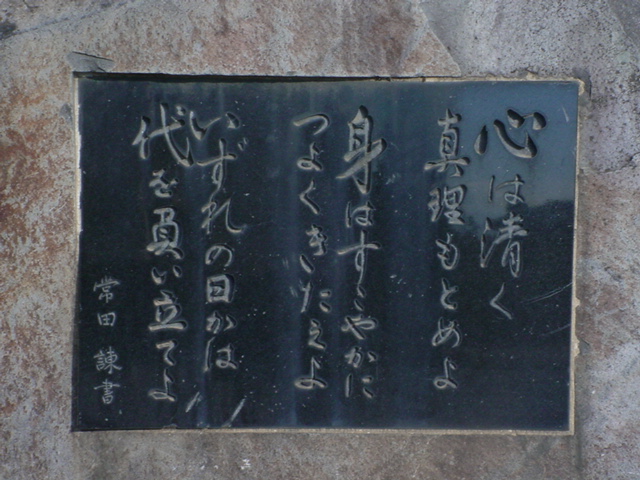 心は清く
真理もとめよ
身はすこやかに
つよくきたえよ
いずれの日かは
代を負い立てよ
常田 諫書